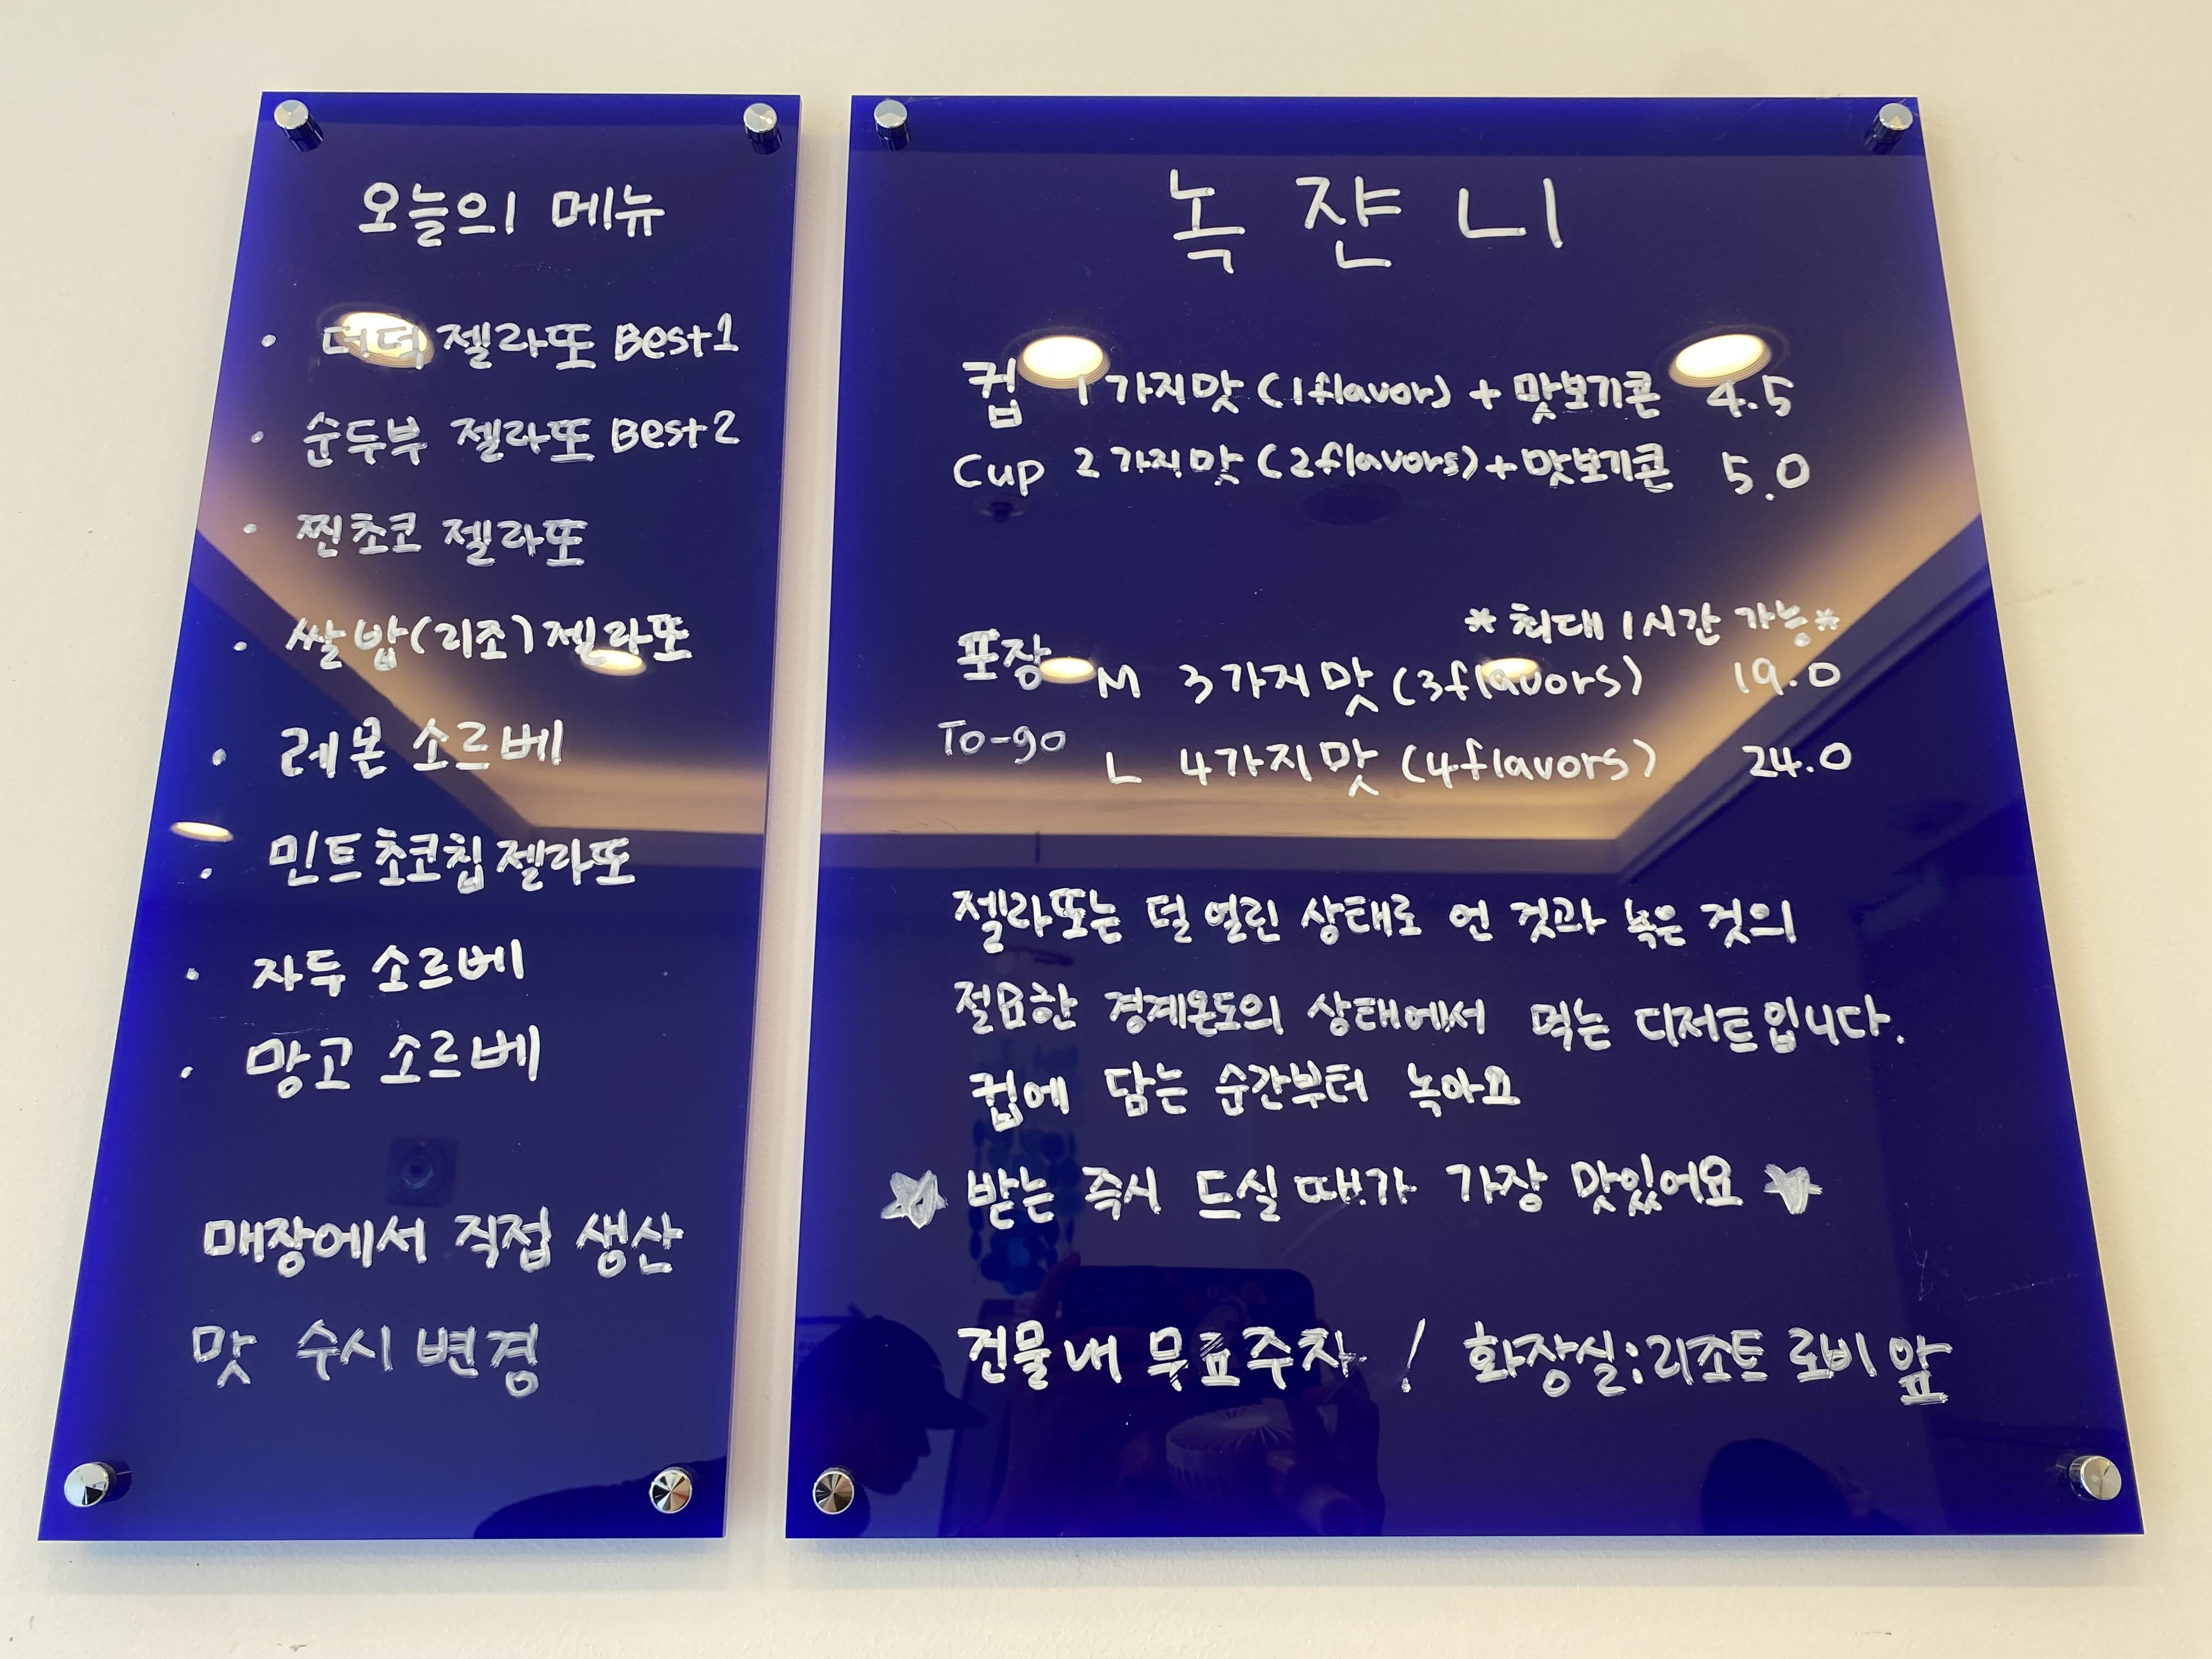 오늘의 메뉴
· 더덕 젤라또 Best1
· 순두부 젤라또 Best2
· 찐초코 젤라또
· 쌀밥(리조) 젤라또
· 레몬 소르베
· 민트초코칩 젤라또
· 자두 소르베
· 망고 소르베
매장에서 직접 생산
맛 수시 변경
녹쟌니
컵 1가지맛 (1flavor) + 맛보기콘 4.5
Cup 2가지맛 (2flavors) + 맛보기콘 5.0
*최대 1시간 가능*
포장 M 3가지맛 (3flavors) 19.0
To-go L 4가지맛 (4flavors) 24.0
젤라또는 덜 얼린 상태로 언 것과 녹은 것의
절묘한 경계온도의 상태에서 먹는 디저트입니다.
컵에 담는 순간부터 녹아요
☆ 받는 즉시 드실 때가 가장 맛있어요 ☆
건물 내 무료주차 / 화장실:리조트 로비 앞